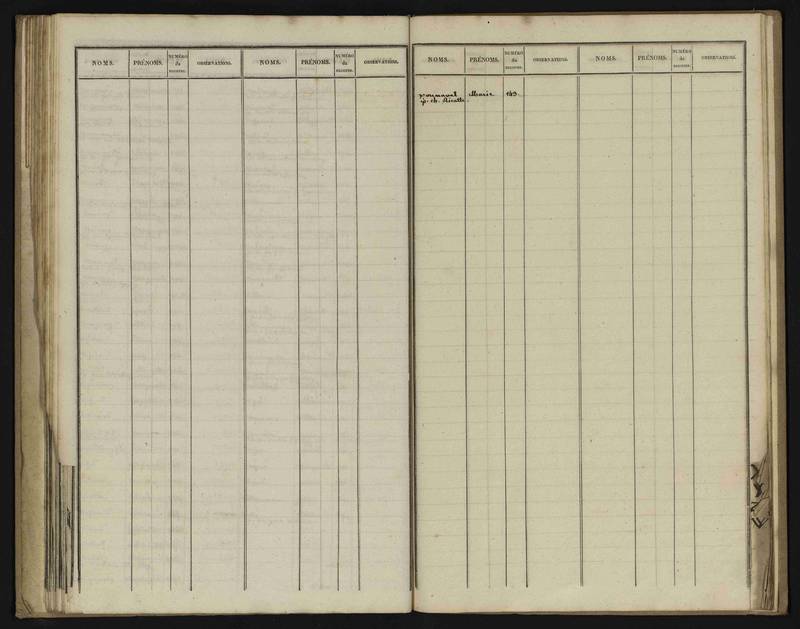 NOMS. PRÉNOMS. NUMÉRO du REGISTRE. OBSERVATIONS. NOMS. PRÉNOMS. NUMÉRO du REGISTRE. OBSERVATIONS.
NOMS. PRÉNOMS. NUMÉRO du REGISTRE. OBSERVATIONS. NOMS. PRÉNOMS. NUMÉRO du REGISTRE. OBSERVATIONS.
Marie 143